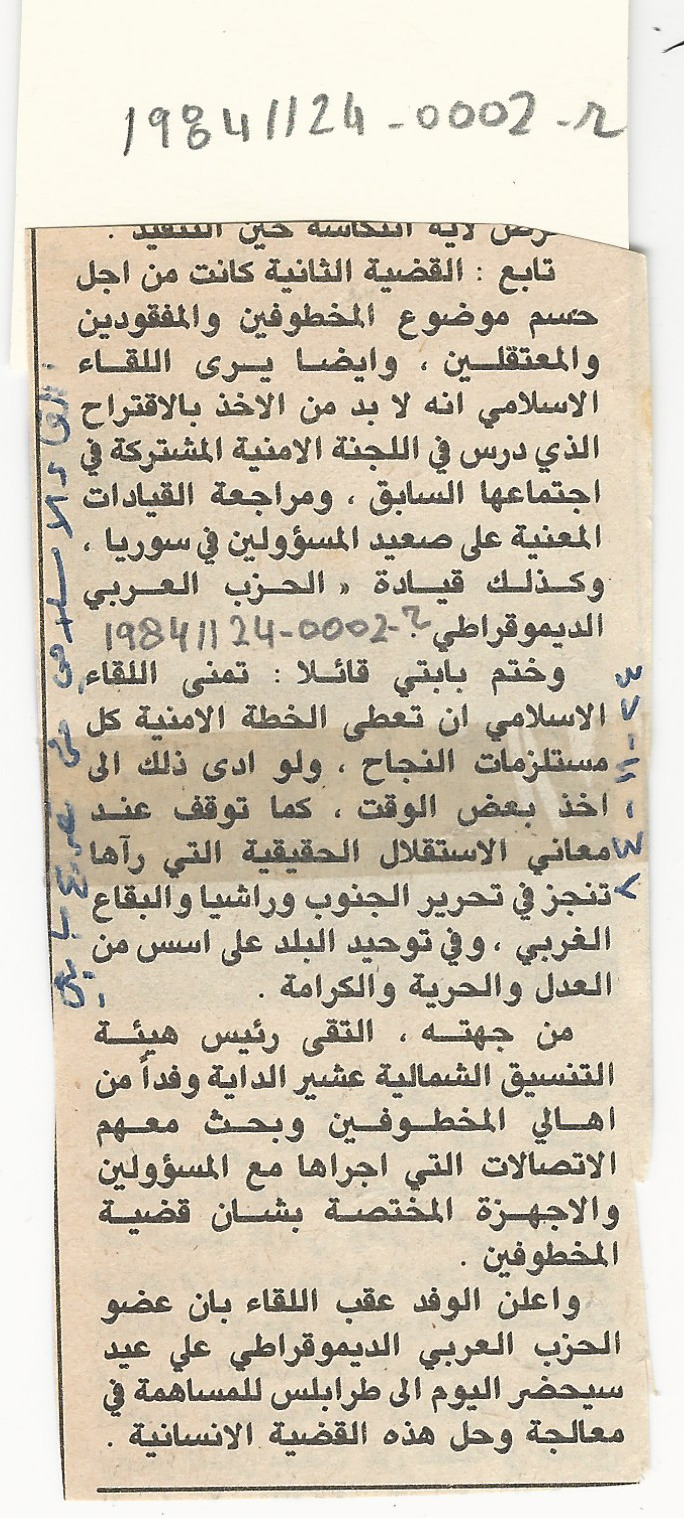 19841124-0002-2
لاية انتكاسة حين التنفيذ .
تابع : القضية الثانية كانت من اجل
حسم موضوع المخطوفين والمفقودين
والمعتقلين ، وايضا يرى اللقاء
الاسلامي انه لا بد من الاخذ بالاقتراح
الذي درس في اللجنة الامنية المشتركة في
اجتماعها السابق ، ومراجعة القيادات
المعنية على صعيد المسؤولين في سوريا ،
وكذلك قيادة « الحزب العربي
الديموقراطي .
19841124-0002-2
وختم بابتي قائلا : تمنى اللقاء
الاسلامي ان تعطى الخطة الامنية كل
مستلزمات النجاح ، ولو ادى ذلك الى
اخذ بعض الوقت ، كما توقف عند
معاني الاستقلال الحقيقية التي رآها
تنجز في تحرير الجنوب وراشيا والبقاع
الغربي ، وفي توحيد البلد على اسس من
العدل والحرية والكرامة .
من جهته ، التقى رئيس هيئة
التنسيق الشمالية عشير الداية وفداً من
اهالي المخطوفين وبحث معهم
الاتصالات التي اجراها مع المسؤولين
والاجهزة المختصة بشان قضية
المخطوفين .
واعلن الوفد عقب اللقاء بان عضو
الحزب العربي الديموقراطي علي عيد
سيحضر اليوم الى طرابلس للمساهمة في
معالجة وحل هذه القضية الانسانية .